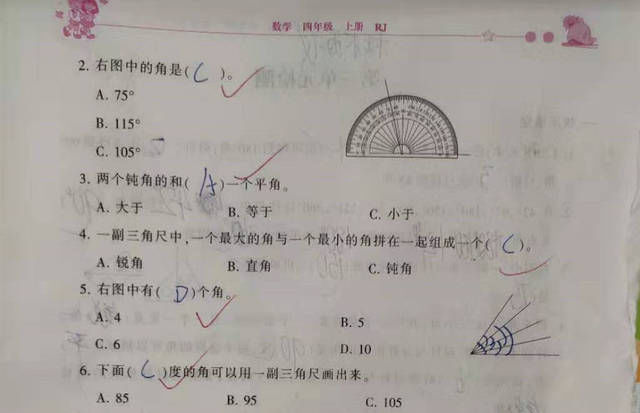 数学 四年级 上册 RJ
2. 右图中的角是( C )。
A. 75°
B. 115°
C. 105°
3. 两个钝角的和( A )一个平角。
A. 大于 B. 等于 C. 小于
4. 一副三角尺中,一个最大的角与一个最小的角拼在一起组成一个( C )。
A. 锐角 B. 直角 C. 钝角
5. 右图中有( D )个角。
A. 4 B. 5
C. 6 D. 10
6. 下面( C )度的角可以用一副三角尺画出来。
A. 85 B. 95 C. 105